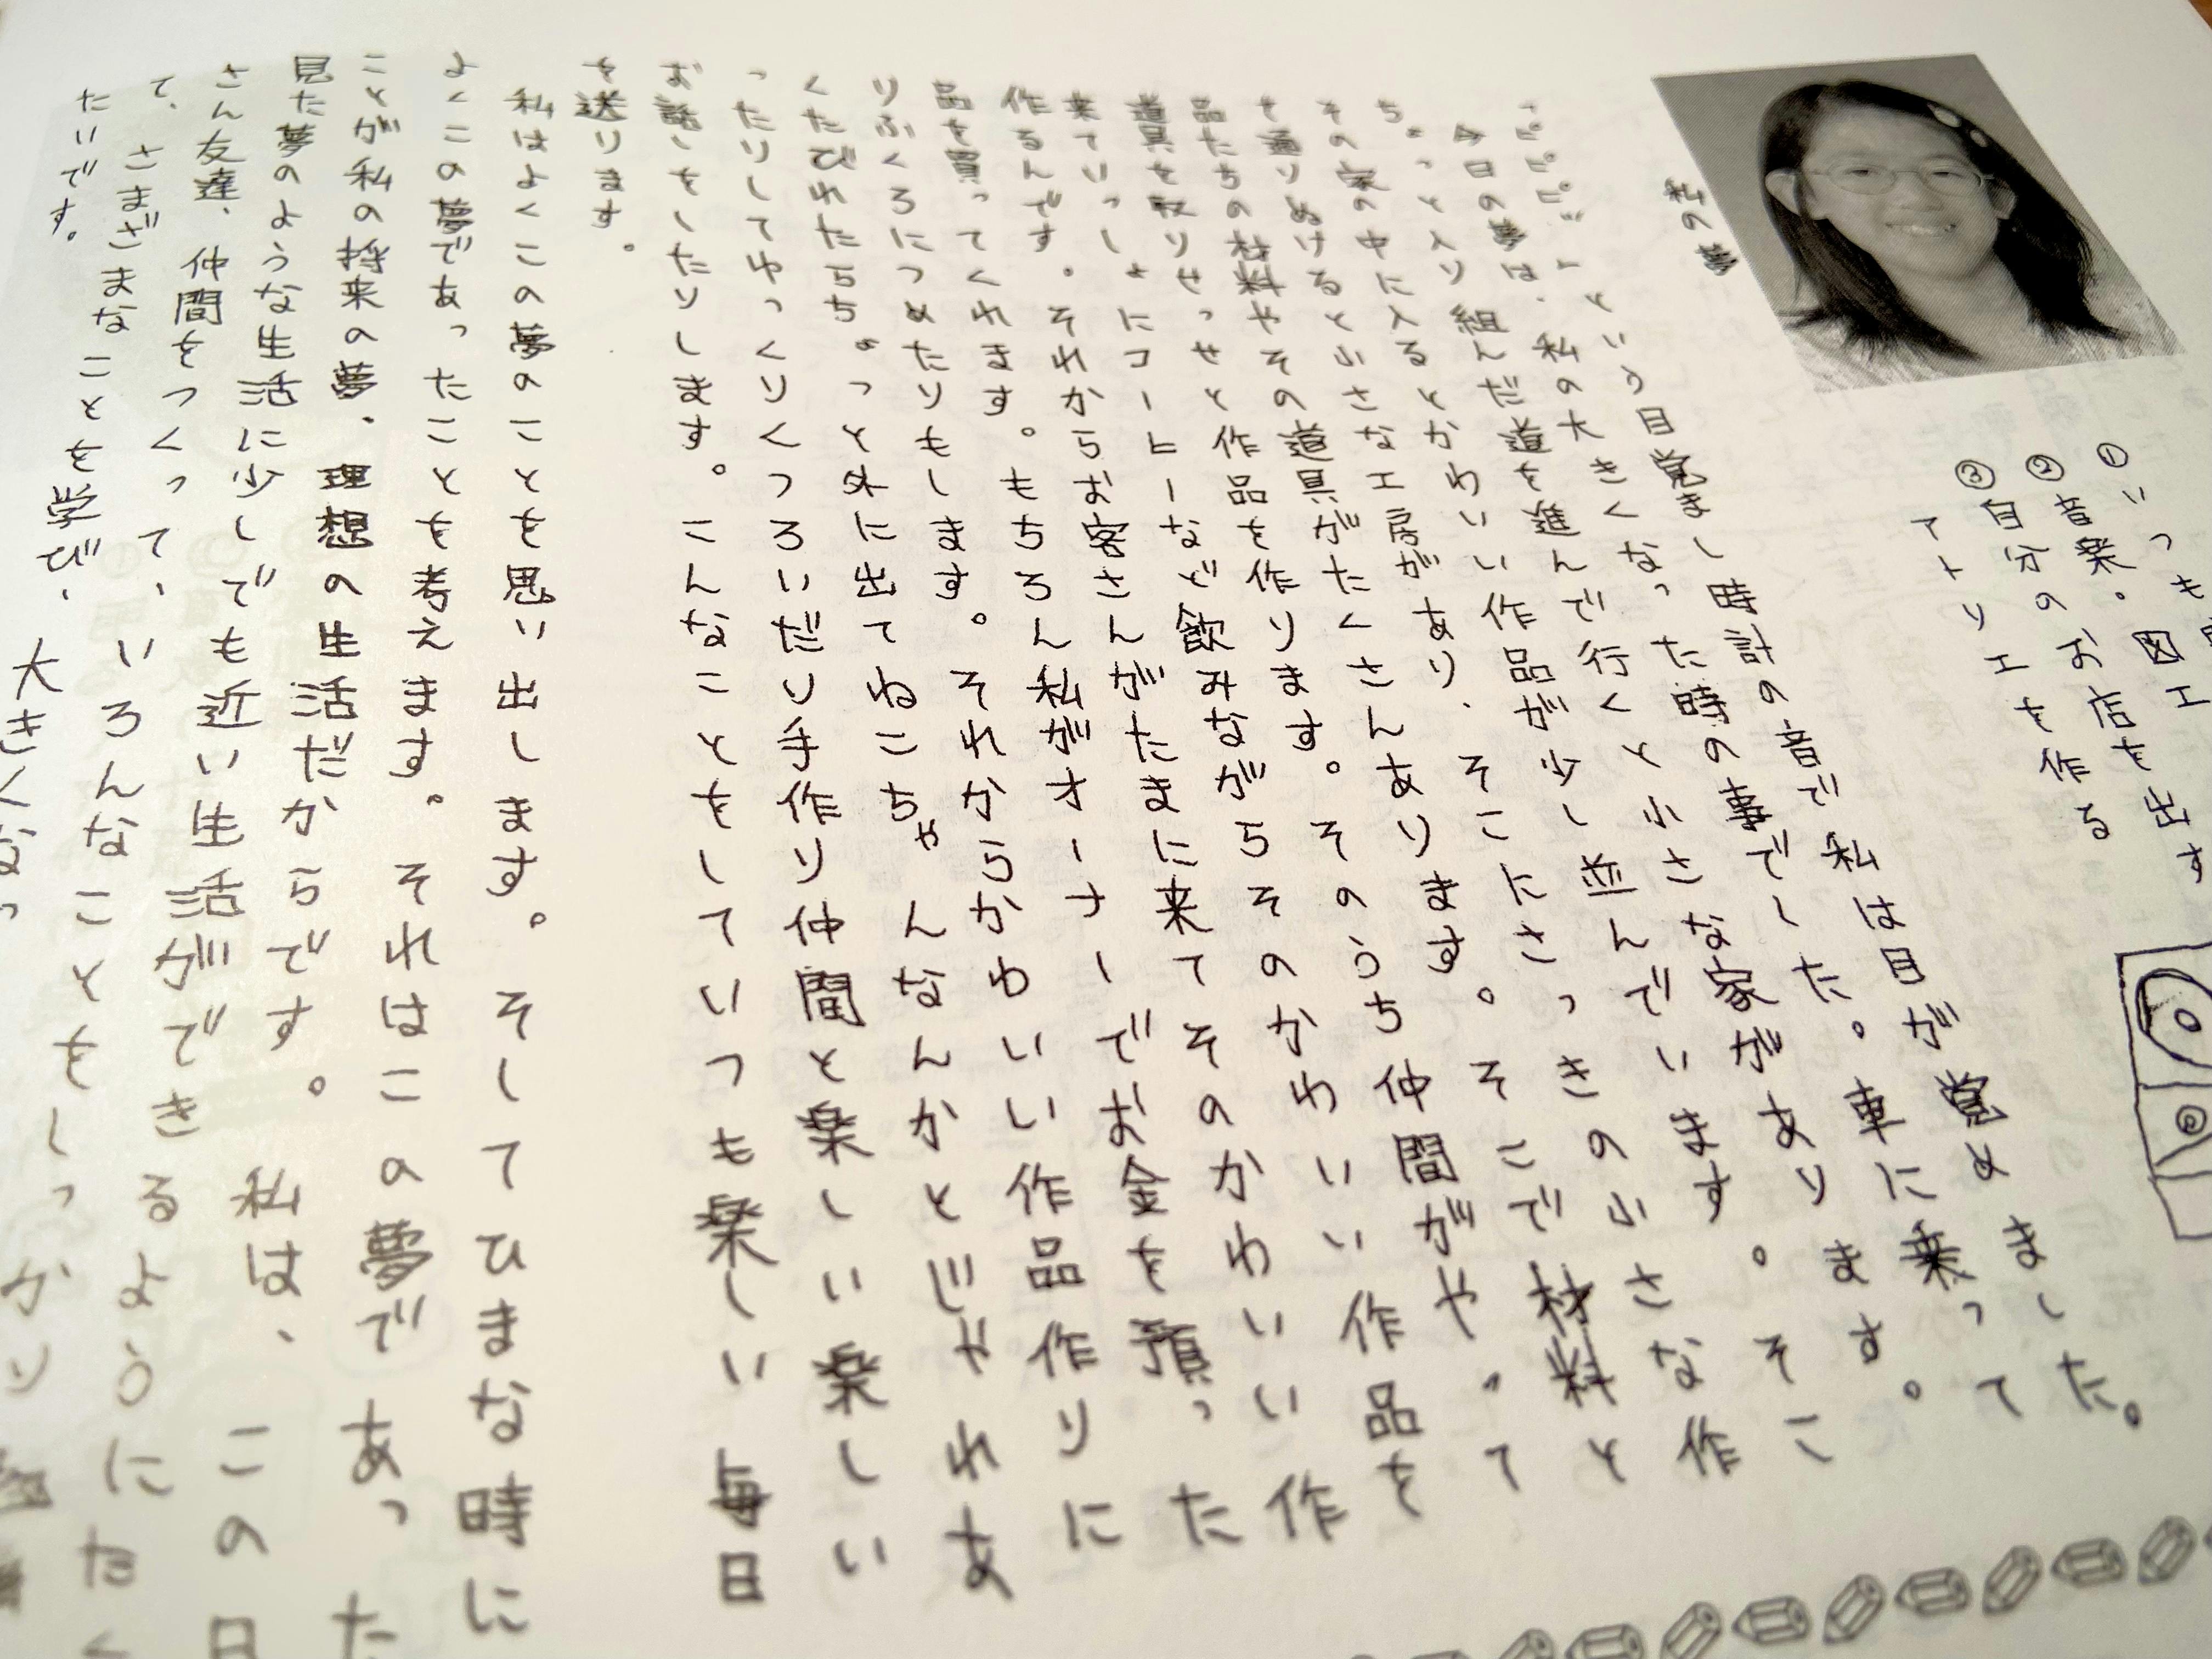 ①いつも
②音楽。図工
③自分のお店を出す
アトリエを作る
私の夢
「ピピピピッ」という目覚まし時計の音で私は目が覚めました。
今日の夢は、私の大きくなった時の事でした。車に乗って
ちょっと入り組んだ道を進んで行くと小さな家があります。
その家の中に入るとかわいい作品が少し並んでいます。そこ
を通りぬけると小さな工房があり、そこにさっきの小さな作
品たちの材料やその道具がたくさんあります。そこで材料と
道具を取りせっせと作品を作ります。そのうち仲間がやって
来ていっしょにコーヒーなど飲みながらそのかわいい作品を
作るんです。それからお客さんがたまに来てそのかわいい作
品を買ってくれます。もちろん私がオーナーでお金を預った
りふくろにつめたりもします。それからかわいい作品作りに
くたびれたらちょっと外に出てねこちゃんなんかとじゃれあ
ったりしてゆっくりくつろいだり手作り仲間と楽しい楽しい
お話しをしたりします。こんなことをしていつも楽しい毎日
を送ります。
私はよくこの夢のことを思い出します。そしてひまな時に
よくこの夢であったことを考えます。それはこの夢であった
ことが私の将来の夢、理想の生活だからです。私は、この日
見た夢のような生活に少しでも近い生活ができるようにたく
さん友達、仲間をつくって、いろんなことをしっかり
て、さまざまなことを学び、大きくなっ
たいです。